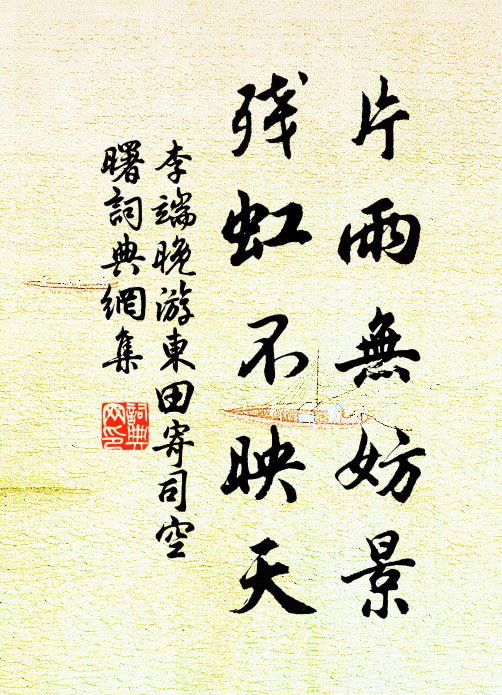 片雨無妨景
残虹不映天
李端晚游東田寄司空
曙詞典網集
詞典
网印